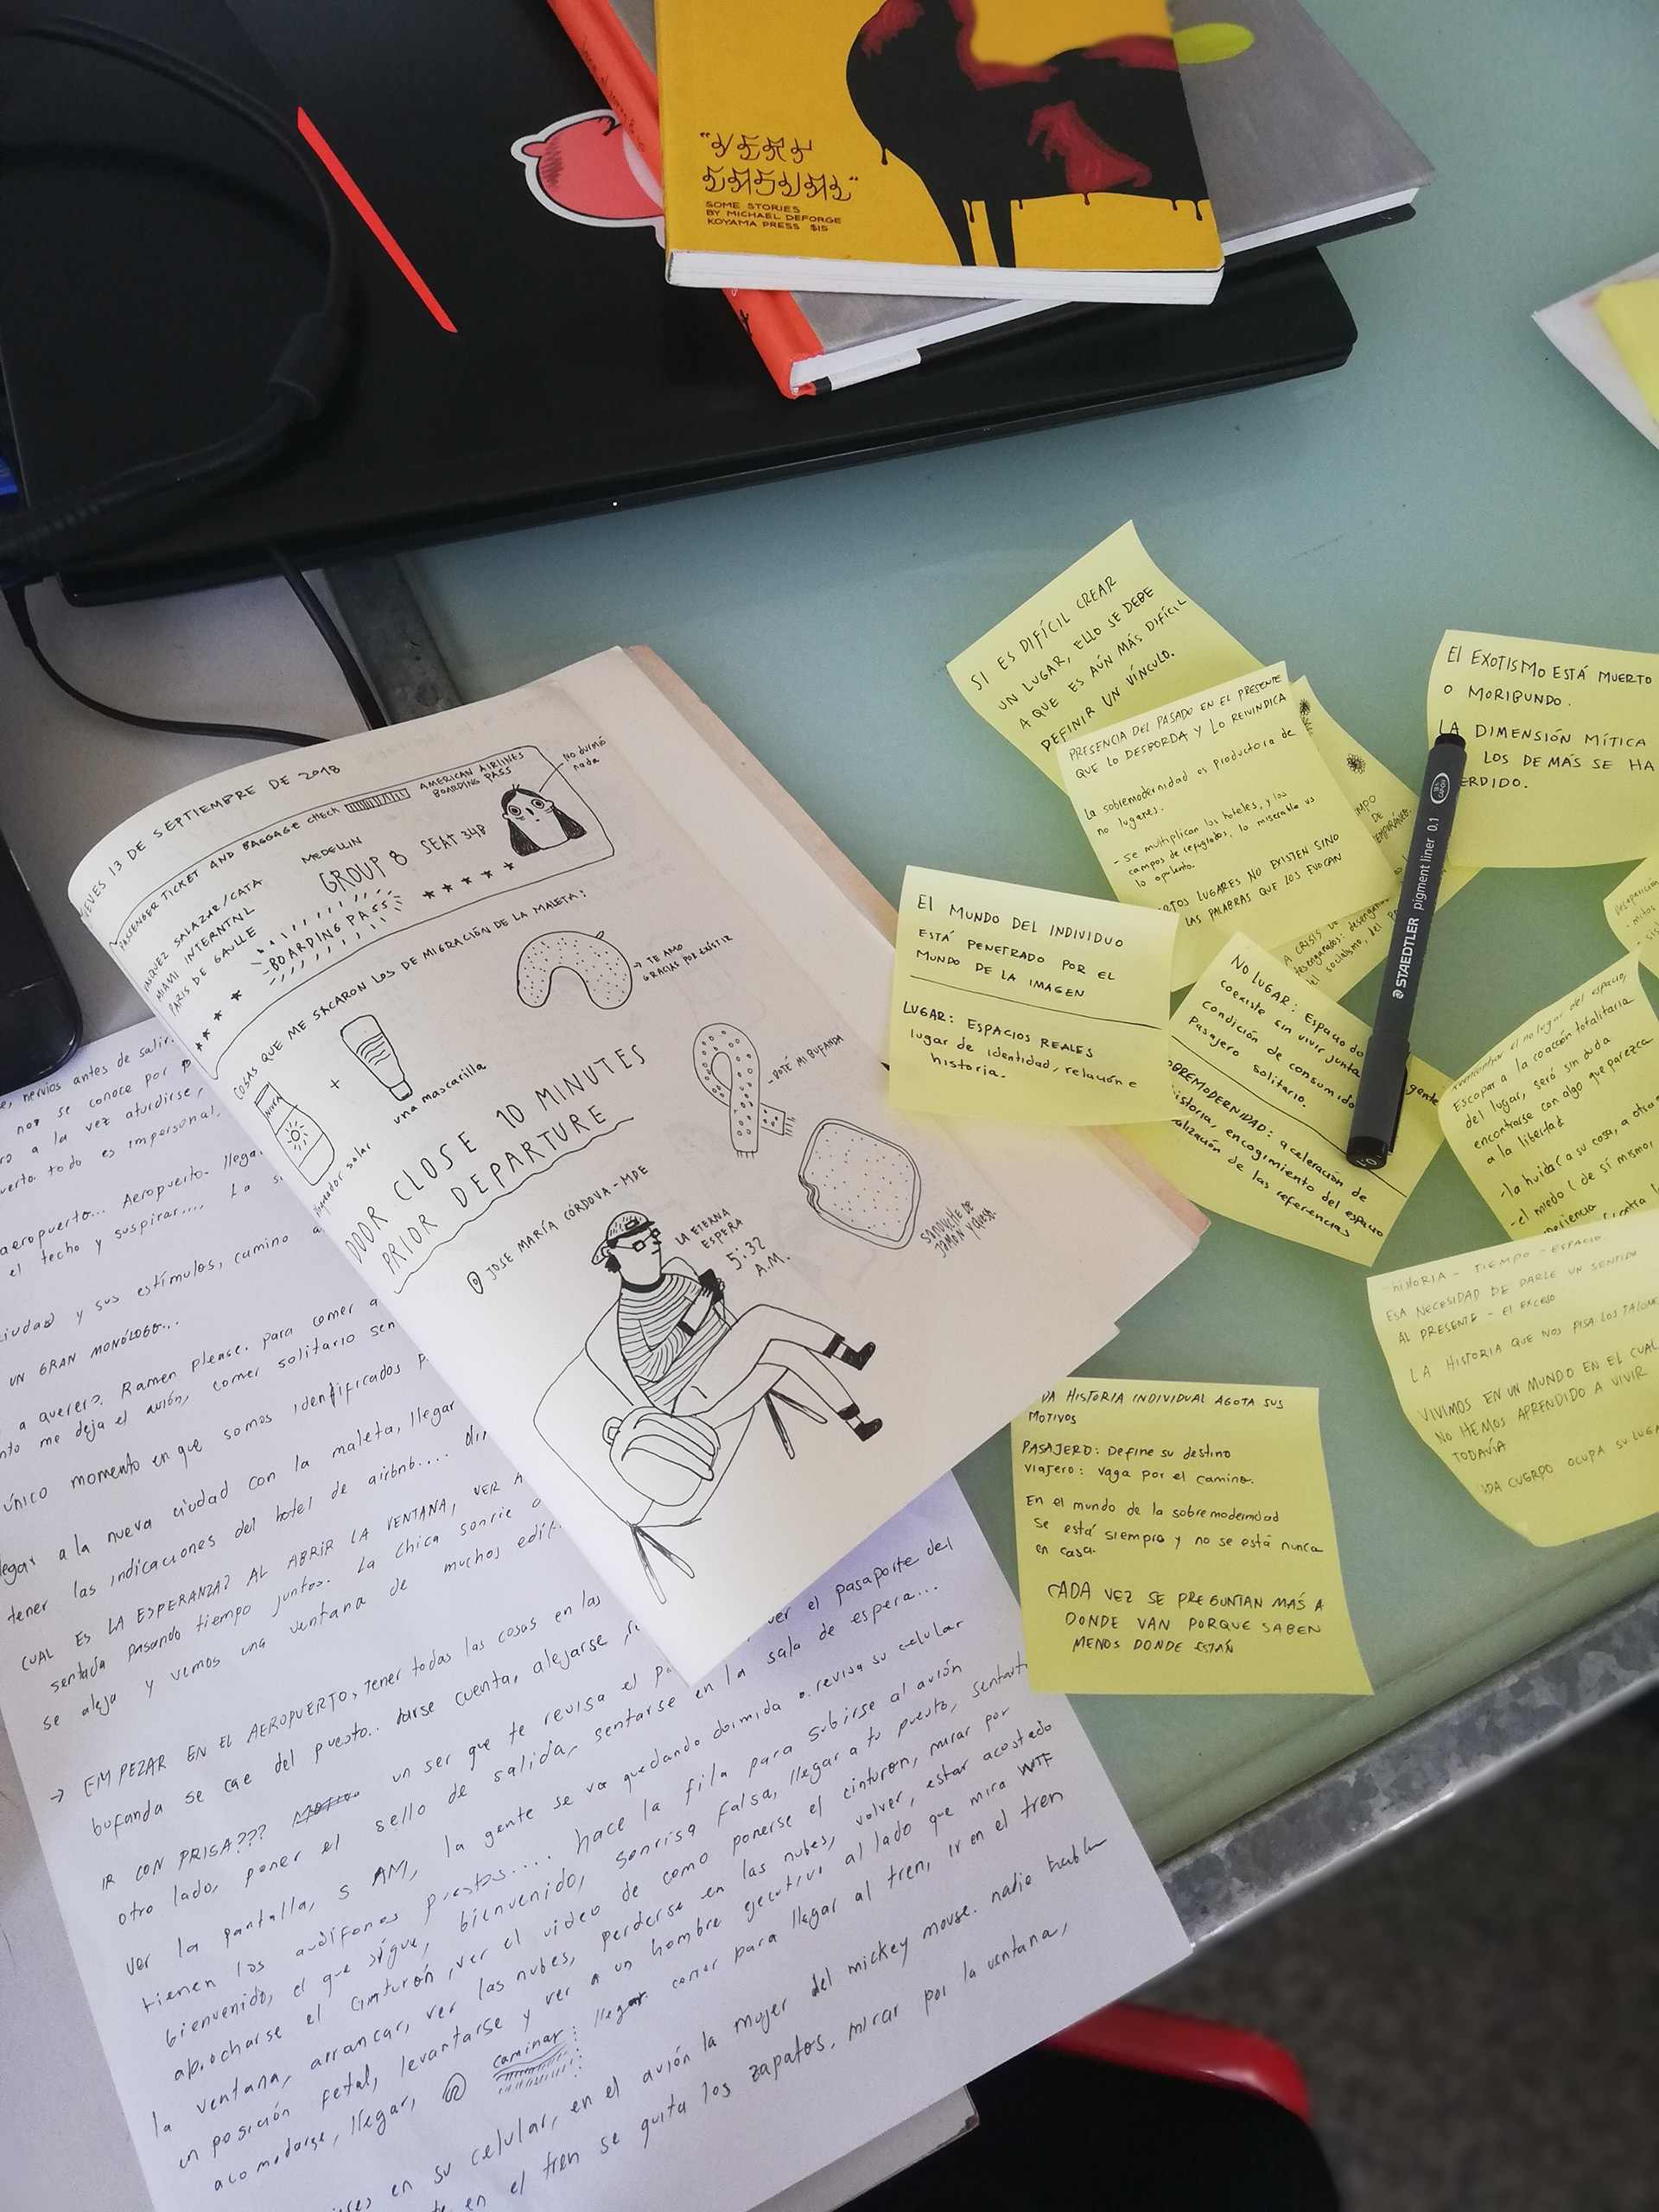 "VERY
CASUAL"
SOME STORIES
BY MICHAEL DEFORGE
KOYAMA PRESS $15
JUEVES 13 DE SEPTIEMBRE DE 2018
PASSENGER TICKET AND BAGGAGE CHECK
AMERICAN AIRLINES
BOARDING PASS
no durmió
nada
VASQUEZ SALAZAR/CATA
MIAMI INTERNTNL
PARIS DE GAULLE
MEDELLIN
GROUP 8 SEAT 34B
BOARDING PASS
COSAS QUE ME SACARON LOS DE MIGRACIÓN DE LA MALETA:
TE AMO
GRACIAS POR EXISTIR
NIVEA
+
una mascarilla
solar
BOTÉ MI BUFANDA
DOOR CLOSE 10 MINUTES
PRIOR DEPARTURE
JOSE MARÍA CÓRDOVA - MDE
LA ETERNA
ESPERA
5:32
A.M.
SANDUCHE DE
JAMÓN Y QUESO.
SI ES DIFÍCIL CREAR
UN LUGAR, ELLO SE DEBE
A QUE ES AÚN MÁS DIFÍCIL
DEFINIR UN VÍNCULO.
PRESENCIA DEL PASADO EN EL PRESENTE
QUE LO DESBORDA Y LO REIVINDICA
La sobremodernidad es productora de
no lugares.
- se multiplican los hoteles, y los
campos de refugiados, lo miserable vs
lo opulento.
LUGARES NO EXISTEN SINO
LAS PALABRAS QUE LOS EVOCAN
El EXOTISMO ESTÁ MUERTO
O MORIBUNDO.
LA DIMENSIÓN MÍTICA
LOS DEMÁS SE HA
El MUNDO DEL INDIVIDUO
ESTÁ PENETRADO POR EL
MUNDO DE LA IMAGEN
LUGAR: ESPACIOS REALES
lugar de identidad, relación e
historia.
NO LUGAR: Espacio do
coexiste sin vivir junta gente
condición de consumido
Pasajero solitario.
SOBREMODERNIDAD: aceleración de
historia, encogimiento del espacio
de las referencias
STAEDTLER pigment liner 0.1
0.1
del espacio
Escapar a la coacción totalitaria
del lugar, será sin duda
encontrarse con algo que parezca
a la libertad
- la huida (a su casa, a otra
- el miedo (de sí mismo,
- historia - TIEMPO - ESPACIO.
ESA NECESIDAD DE DARLE UN SENTIDO
AL PRESENTE - El EXCESO
LA HISTORIA QUE NOS PISA LOS TALONES
VIVIMOS EN UN MUNDO EN EL CUAL
NO HEMOS APRENDIDO A VIVIR
TODAVÍA
CUERPO OCUPA SU LUGA
HISTORIA INDIVIDUAL AGOTA SUS
MOTIVOS
PASAJERO: Define su destino
VIAJERO: vaga por el camino.
En el mundo de la sobremodernidad
se está siempre y no se está nunca
en casa.
CADA VEZ SE PREGUNTAN MÁS A
DONDE VAN PORQUE SABEN
MENOS DONDE ESTÁN
nervios antes de salir.
nos se conoce por
a la vez aturdirse,
todo es impersonal,
aeropuerto... Aeropuerto. llega
el techo y suspirar.... La
y sus estímulos, camino a
UN GRAN MONÓLOGO...
a querer? Ramen please. para comer
me deja el avión, comer solitario
único momento en que somos identificados
a la nueva ciudad con la maleta, llegar
tener las indicaciones del hotel de airbnb....
CUAL ES LA ESPERANZA? AL ABRIR LA VENTANA, VER A
sentada pasando tiempo juntos. La chica sonríe
se aleja y vemos una ventana de muchos
→ EMPEZAR EN EL AEROPUERTO, tener todas las cosas en las
bufanda se cae del puesto.. darse cuenta, alejarse
IR CON PRISA??? un ser que te revisa el ver el pasaporte del
otro lado, poner el sello de salida, sentarse en la sala de espera...
ver la pantalla, 5 AM, la gente se va quedando dormida o revisa su celular
tienen los audífonos puestos.... hace la fila para subirse al avión
bienvenido, el que sigue, bienvenido, sonrisa falsa, llegar a tu puesto,
abrocharse el cinturón, ver el video de como ponerse el cinturon, mirar por
la ventana, arrancar, ver las nubes, perderse en las nubes, volver, estar acostado
en posición fetal, levantarse y ver a un hombre ejecutivo al lado que mira WTF
acomodarse, llegar, caminar llegar. correr para llegar al tren, ir en el tren
en su celular, en el avión la mujer del mickey mouse. nadie habla
en el tren se quita los zapatos. mirar por la ventana,